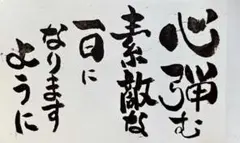 心弾む
素敵な
一日に
なります
ように